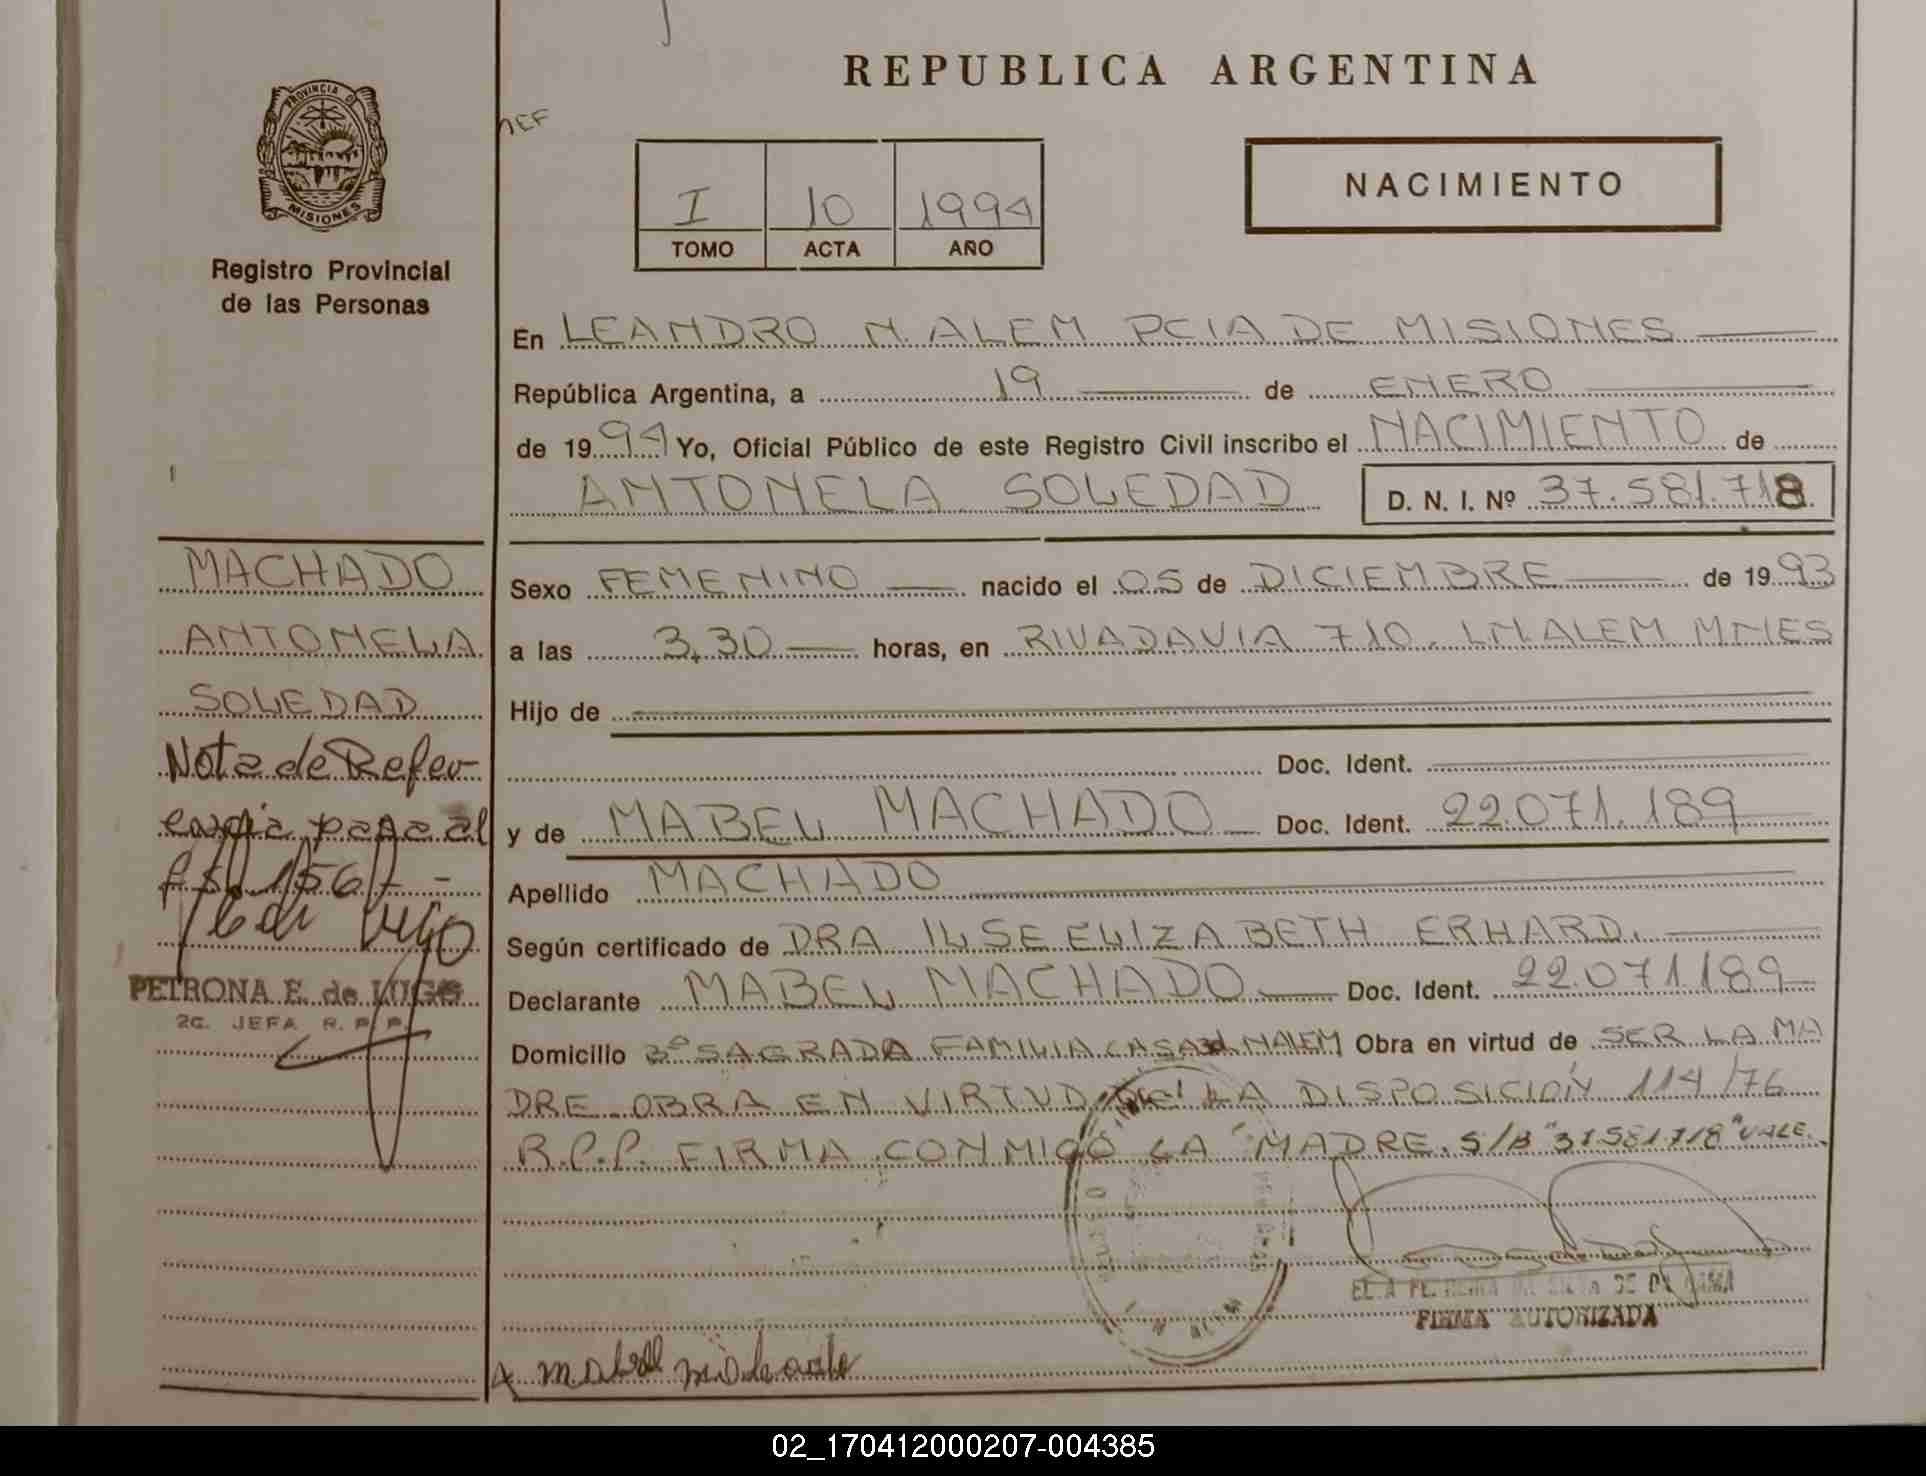 REPUBLICA ARGENTINA
PROVINCIA D
MISIONES
Registro Provincial
de las Personas
NEF
I 10 1994
TOMO ACTA AÑO
NACIMIENTO
En LEANDRO N. ALEM PCIA DE MISIONES
República Argentina, a 19 de ENERO
de 1994 Yo, Oficial Público de este Registro Civil inscribo el NACIMIENTO de
ANTONELA SOLEDAD D. N. I. Nº 37.581.718
MACHADO
ANTONELA
SOLEDAD
Nota de Refer
encia para al
PETRONA E. de LUGO
2G. JEFA R. P. P.
Sexo FEMENINO nacido el 05 de DICIEMBRE de 1993
a las 3,30 horas, en RIVADAVIA 710. L.N.ALEM MNES
Hijo de
Doc. Ident.
y de MABEL MACHADO Doc. Ident. 22.071.189
Apellido MACHADO
Según certificado de DRA ILSE ELIZABETH ERHARD.
Declarante MABEL MACHADO Doc. Ident. 22.071.189
Domicilio Bº SAGRADA FAMILIA CASA N ALEM Obra en virtud de SER LA MA
DRE OBRA EN VIRTUD DE LA DISPOSICIÓN 114/76
R.P.P. FIRMA CONMIGO LA MADRE. S/B "37.581.718" VALE.
FIRMA AUTORIZADA
02_170412000207-004385